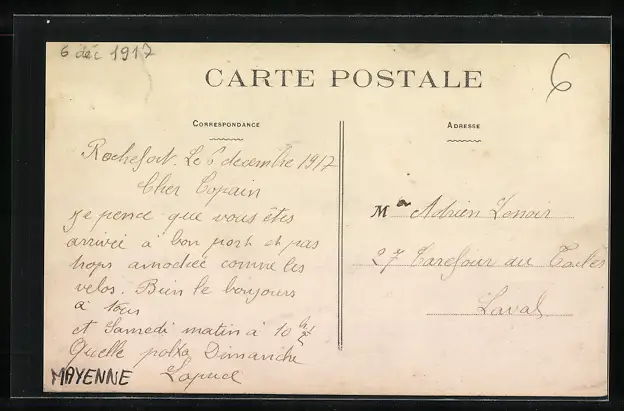 6 déc 1917
CARTE POSTALE
6
CORRESPONDANCE
Rochefort. Le 6 decembre 1917
Cher Copain
je pence que vous êtes
arrivée à bon port et pas
trops amochée comme les
velos. Bien le bonjours
à tous
et Samedi matin à 10
Quelle polka Dimanche
MAYENNE
ADRESSE
M Adrien Lenoir
27 Carefour au
Laval